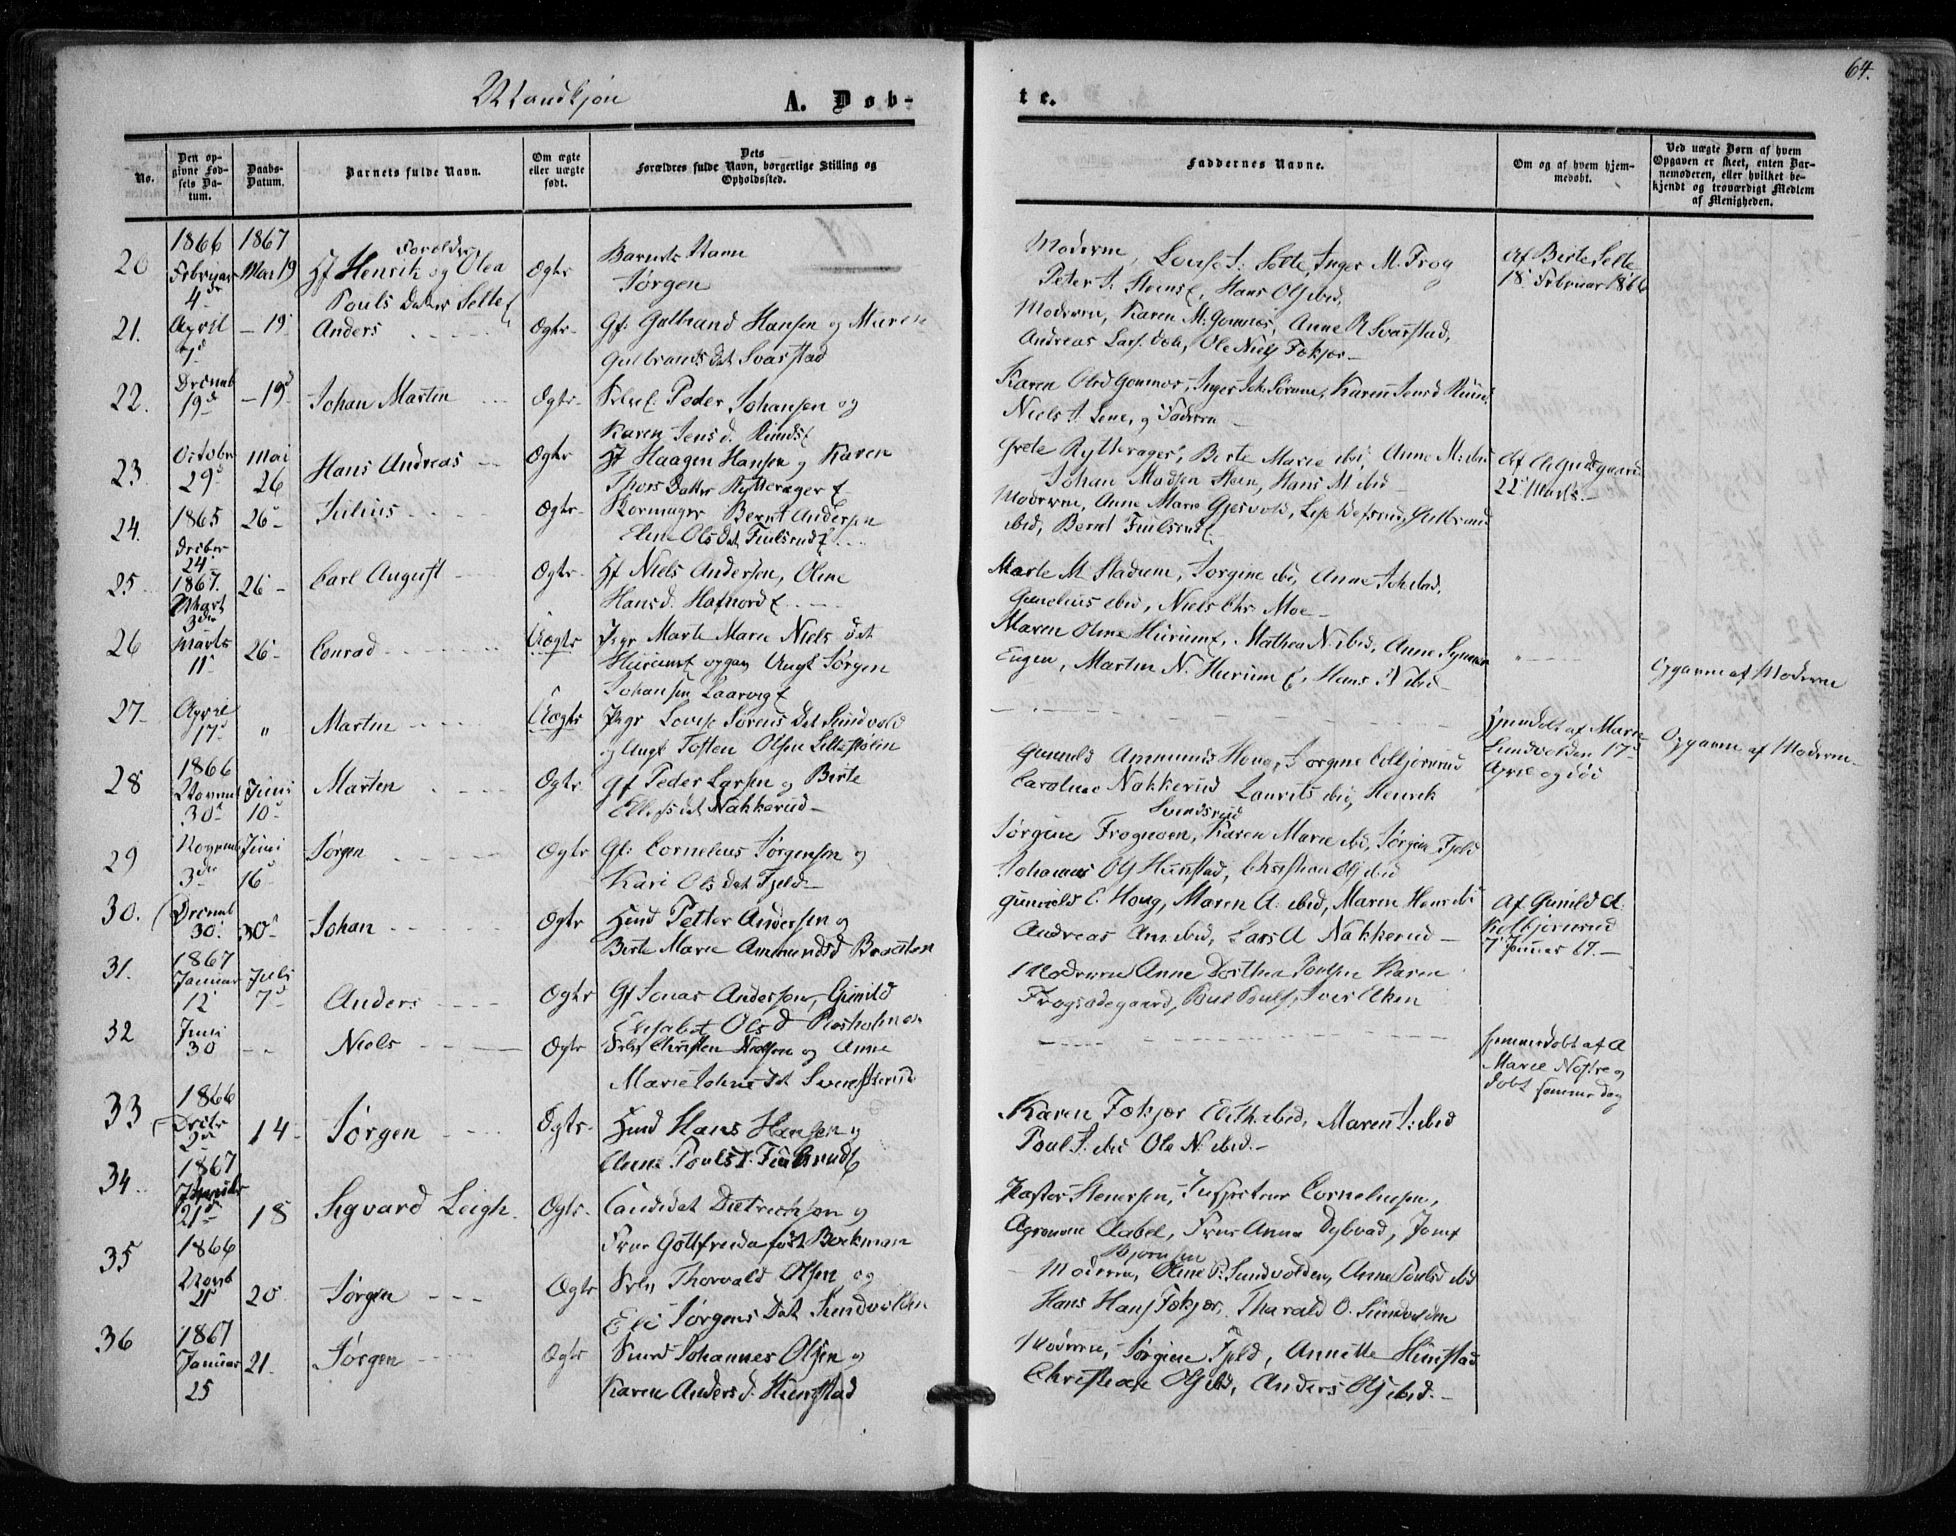 64.
Mandkjøn
A. Døb-
te.
No.
Den op-
givne Fød-
sels Da-
tum.
Daabs-
Datum.
Barnets fulde Navn.
Om ægte
eller uægte
født.
Dets
Forældres fulde Navn, borgerlige Stilling og
Opholdssted.
Faddernes Navne.
Om og af hvem hjem-
medøbt.
Ved uægte Børn af hvem
Opgaven er skeet, enten Bar-
nemoderen, eller hvilket be-
kjendt og troværdigt Medlem
af Menigheden.
20
1866
Februar
4de
1867
Mai 19
Forældre
Hf Henrik og Olea
Pouls Datter Selte
Ægte
Barnets Navn
Jørgen
Moderen, Louise J. Selte, Inger M. Frog
Peter J. Steens, Hans Ols ibid,
Af Birte Selte
18 Februar 1866
21.
April
7d
- 19
Anders
Ægte
Gf: Gulbrand Hansen og Maren
Gulbrands Dat Svarstad
Moderen, Karen M. Gomnæs, Anne R Svarstad,
Andreas Lars, Ole Niels Fækjær
22.
Decemb
19d
- 19d
Johan Martin
Ægte
Peder Johansen og
Karen Jens d.
Karen Olsd Gomnæs, Inger
Niels J. Lene, og Faderen
23
Octobr
29d
Mai
26
Hans Andreas
Ægte
Hf Haagen Hansen og Karen
Thors Datter Rytterager
Grete Rytterager, Berte Marie ibid, Anne M. ibid
Johan Madsen Steen, Hans M ibid
22 Marts.
24.
1865
Decber
24
26
Julius
Ægte
Skomager Bernt Andersen
Eline Ols Dat Fiulsrud
Moderen, Anne Marie Gjesvold,
ibid, Bernt Fiulsrud
25
1867.
Mart
3de
26
Carl August
Ægte
Hf Niels Andersen, Oline
Hans d. Hafnord
Marte M Stadum, Jorgine ibid, Anne Joh ibid,
Gunelius ibid, Niels Chr Moe
26
Marts
11
26
Conrad
Uægte
Pige Marte Marie Niels Dat
Hurum opgav Ungk Jørgen
Johansen Laarvig
Maren Oline Hurum, Mathea N ibid, Anne
Eugen, Martin N. Hurum, Hans N ibid
Opgavne af Moderen
27
April
17d
"
Martin
Uægte
Pige Lovise Sørens Dat Sundvold
og Ungk Tosten Olsen Lillestølen
Hjemdøbt af Maren
Sundvolden 17d
April og død
Opgavne af Moderen
28
1866
Novemb
30d
Juni
10d
Marten
Ægte
Gf Peder Larsen og Birte
Ellefsdat Nakkerud
Gunild Ammunds Houg, Jorgine Colbjørnrud
Caroline Nakkerud Laurits ibid, Henrik
Svendsrud
29
Novemb
3de
Juni
16d
Jørgen
Ægte
Gf: Cornelius Jørgensen og
Kari Ols Dat Fjeld
Jørgine Frognøen, Karen Marie ibid, Jørgine Fjeld
Johannes Ols Hunstad, Christian Ols ibid
30.
Decemb
30.
30d
Johan
Ægte
Huusd Petter Andersen og
Birte Marie Ammundsd Braaten
Gunild E. Houg, Maren A: ibid, Maren Henr ibid
Andreas Am ibid, Lars A Nakkerud
Af Gunild A.
Kolkjørnrud
7 Januar 67.
31.
1867
Januar
12
Juli
7d
Anders
Ægte
Gf Jonas Andersen, Gunild
Elisabet Ols D
Moderen Anne Dorthea Poulsen Karen
Frogsødegaard, Poul Pouls, Iver
32
Juni
30
Niels
Ægte
Christen Nielsen og Anne
Marie Johns Dat
Hjemmedøbt af A
Marie Nøstre og
Døbt samme Dag
33
1866
Decbr
2d
14
Jørgen
Ægte
Huusd Hans Hansen og
Eline Pouls D. Fiulsrud
Karen Fækjær Eli Th. ibid, Maren J: ibid
Poul J. ibid Ole N. ibid.
34
1867
Januar
21d
18
Sigvard Leigh.
Ægte
Candidat Dietrichson og
Frue Gottfreda født Beckman
Pastor Stenersen, Inspecteur Corneliusen,
Agronome Aabel, Frue Anna Dybvad, Jomf
Bjørnsen
35
1866
Novb
21
20
Jørgen
Ægte
Thorvald Olsen og
Eli Jørgens Dat Sundvolden
Moderen, Oline P. Sundvolden, Anne Pouls ibid
Hans Hans Fækjær, Tharald O. Sundvolden
36
1867
Januar
25
21.
Jørgen
Ægte
Huusd Johannes Olsen og
Karen Anders d. Hunstad
Moderen, Jørgine Fjeld, Annette Hunstad
Christian Ols ibid, Anders Ols ibid.